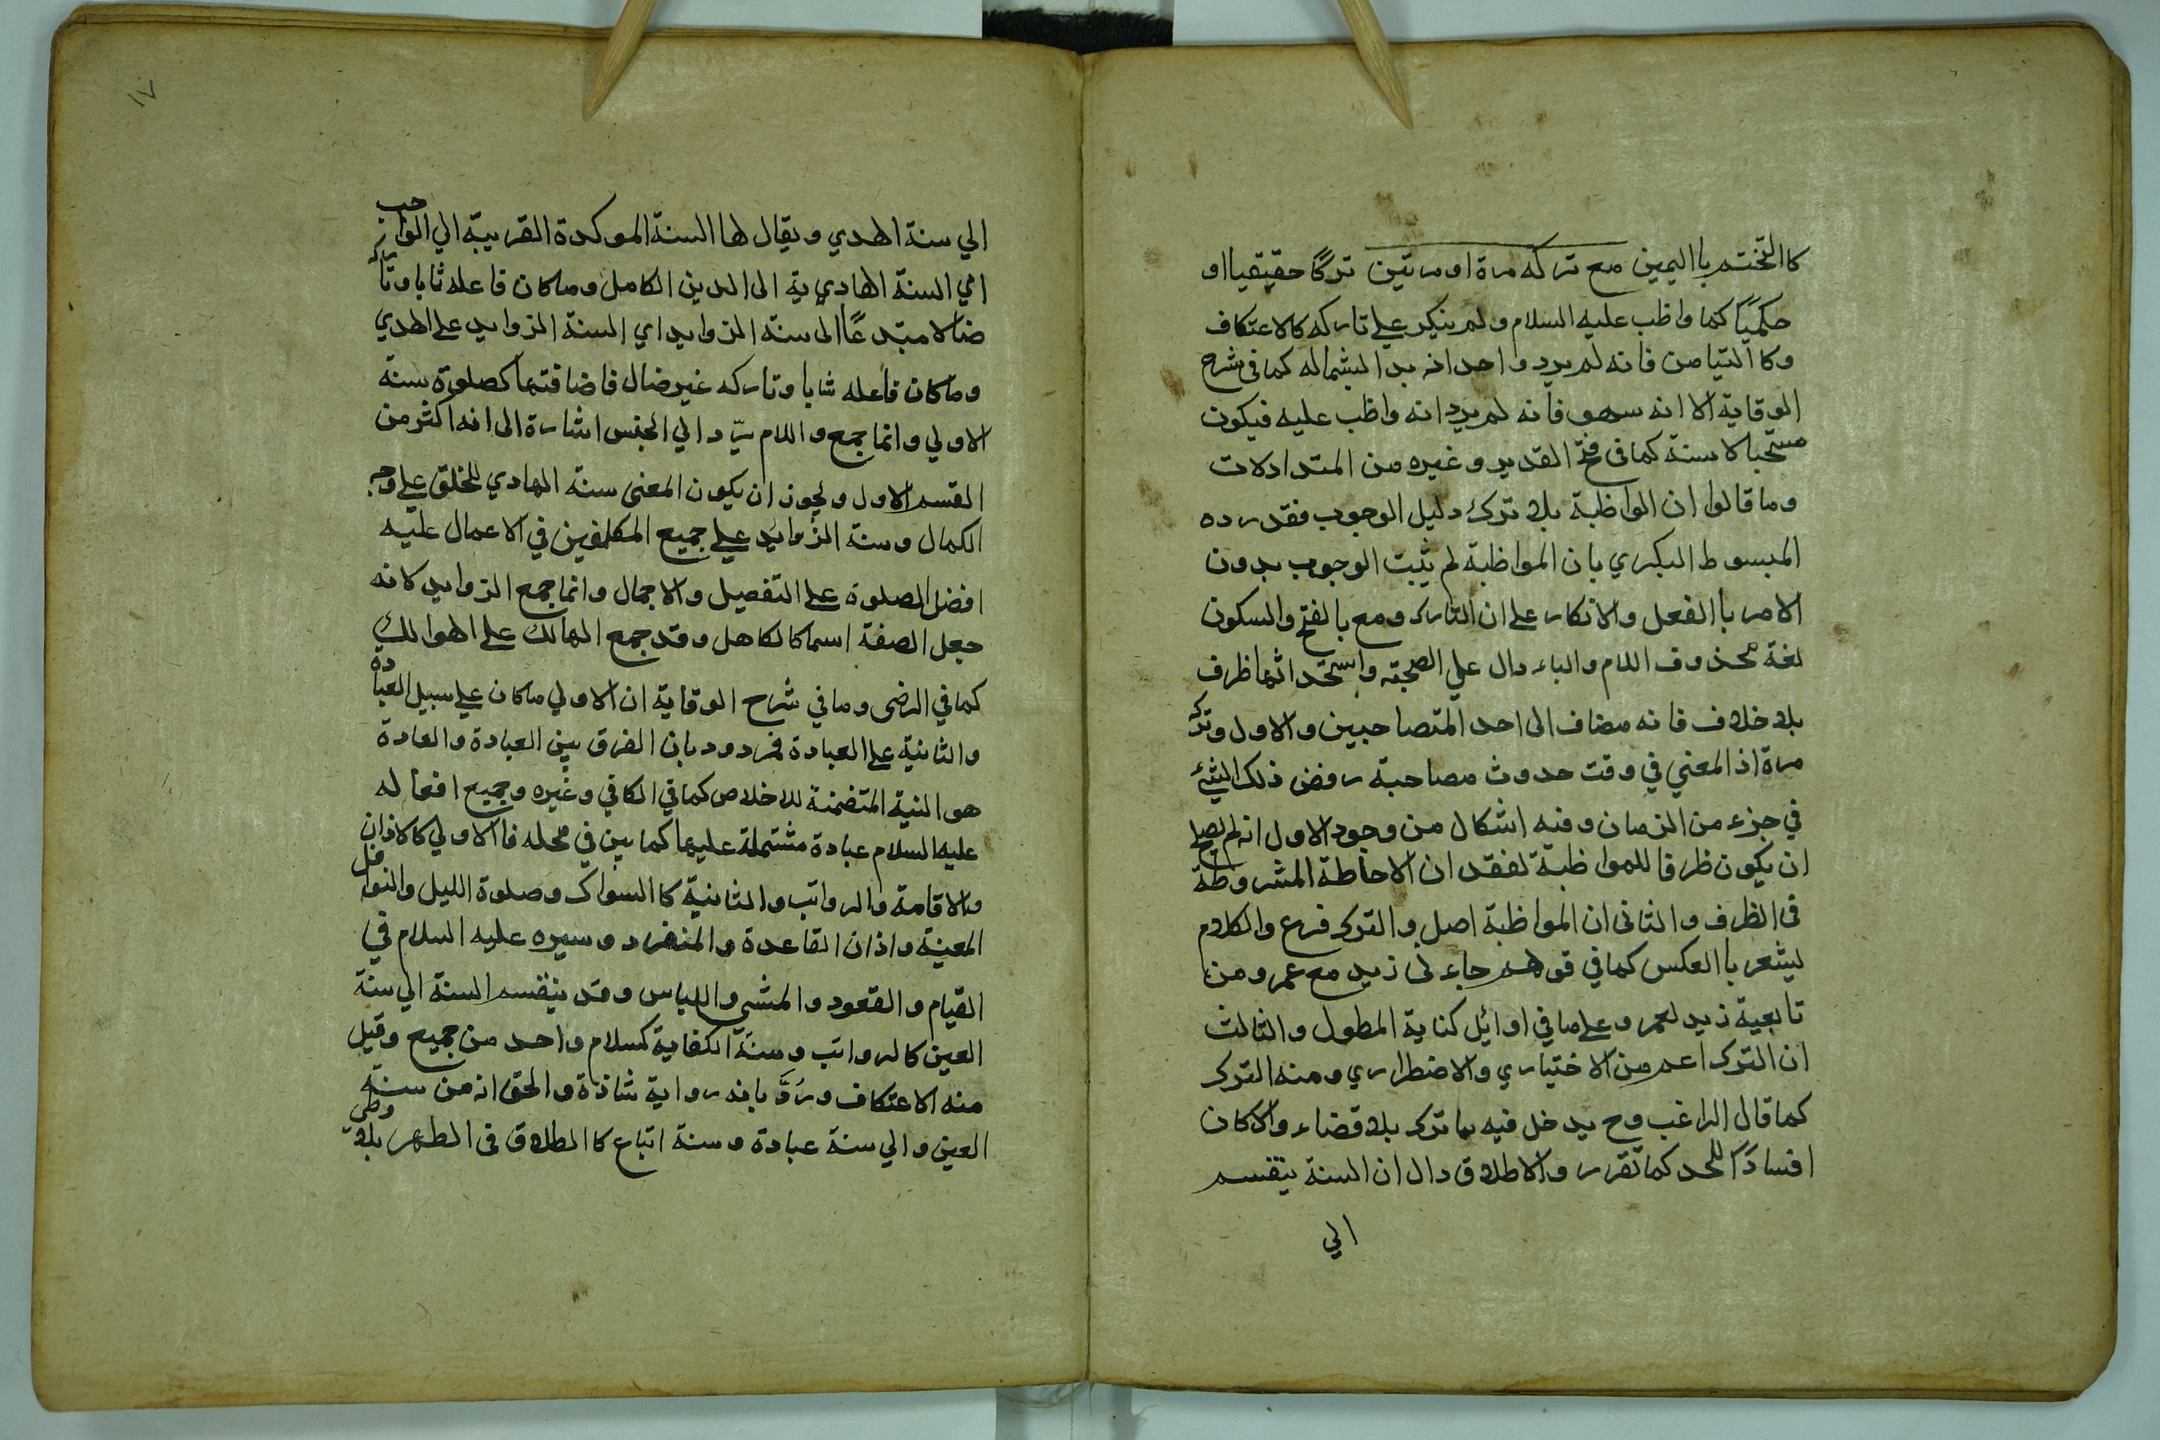 كاالتختم باليمين مع تركه مرة او مرتين تركًا حقيقيا او
حكميًا كما واظب عليه السلام ولم ينكر علي تاركه كالاعتكاف
وكا التيامن فانه لم يرد واحد انه بدا بشماله كما في شرح
الوقاية الا انه سهو فانه لم يرد انه واظب عليه فيكون
مستحبا لا سنة كما في فتح القدير وغيره من المتداولات
وما قالوا ان المواظبة بلا ترك دليل الوجوب فقد رده
المبسوط البكري بان المواظبة لم يثبت الوجوب بدون
الامر باالفعل والانكار على ان التارك ومع بالفتح والسكون
لغة محذوف اللام والباء دال علي الصحبة
بلا خلاف فانه مضاف الى احد المتصاحبين والاول وتركه
مرة اذ المعني في وقت حدوث مصاحبة رفض ذلك الشيء
في جزء من الزمان وفيه اشكال من وجوه الاول انه لم يصلح
ان يكون ظرفا للمواظبة لفقد ان الاحاطة المشروطة
في الظرف والثاني ان المواظبة اصل والترك فرع والكلام
ليشعر باالعكس كما في قولهم جاء ني زيد مع عمرو من
تابعية زيد لعمرو على ما في اوائل كناية المطول والثالث
ان الترك اعم من الاختياري والاضطراري ومنه الترك
كما قال الراغب وح يدخل فيه ما ترك بلا قضاء والا كان
افسادًا للحد كما تقرر والاطلاق دال ان السنة ينقسم
الي
١٧
الي سنة الهدي ويقال لها السنة الموكدة القريبة الي الواجب
اي السنة الهادية الى الدين الكامل وما كان فاعله ثابا وتاركه
ضالا مبتدعًا الى سنة الزوايد اي السنة الزوايد على الهدي
وما كان فاعله ثابا وتاركه غير ضال فاضافتها كصلوة سنة
الاولي وانما جمع واللام يرد الي الجنس اشارة الى انه اكثر من
القسم الاول ويجوز ان يكون المعنى سنة الهادي للخلق على وجه
الكمال وسنة الزوايد علي جميع المكلفين في الاعمال عليه
افضل الصلوة على التفصيل والاجمال وانما جمع الزوايد لانه
جعل الصفة اسما كالكاهل وقد جمع الهالك على الهوالك
كما في الرضى وما في شرح الوقاية ان الاولي ما كان علي سبيل العبادة
والثانية على العبادة فمردود بان الفرق بين العبادة والعادة
هو النية المتضمنة للاخلاص كما في الكافي وغيره وجميع افعاله
عليه السلام عبادة مشتملة عليها كما بين في محله فاالاولي كالاذان
والاقامة والرواتب والثانية كا السواك وصلوة الليل والنوافل
المعينة واذان القاعدة والمنفرد وسيره عليه السلام في
القيام والقعود والمشي واللباس وقد ينقسم السنة الي سنة
العين كالرواتب وسنة الكفاية كسلام واحد من جميع وقيل
منه الاعتكاف ورُدَّ بانه رواية شاذة والحق انه من سنة
العين والي سنة عبادة وسنة اتباع كا الطلاق في الطهر بلا وطى